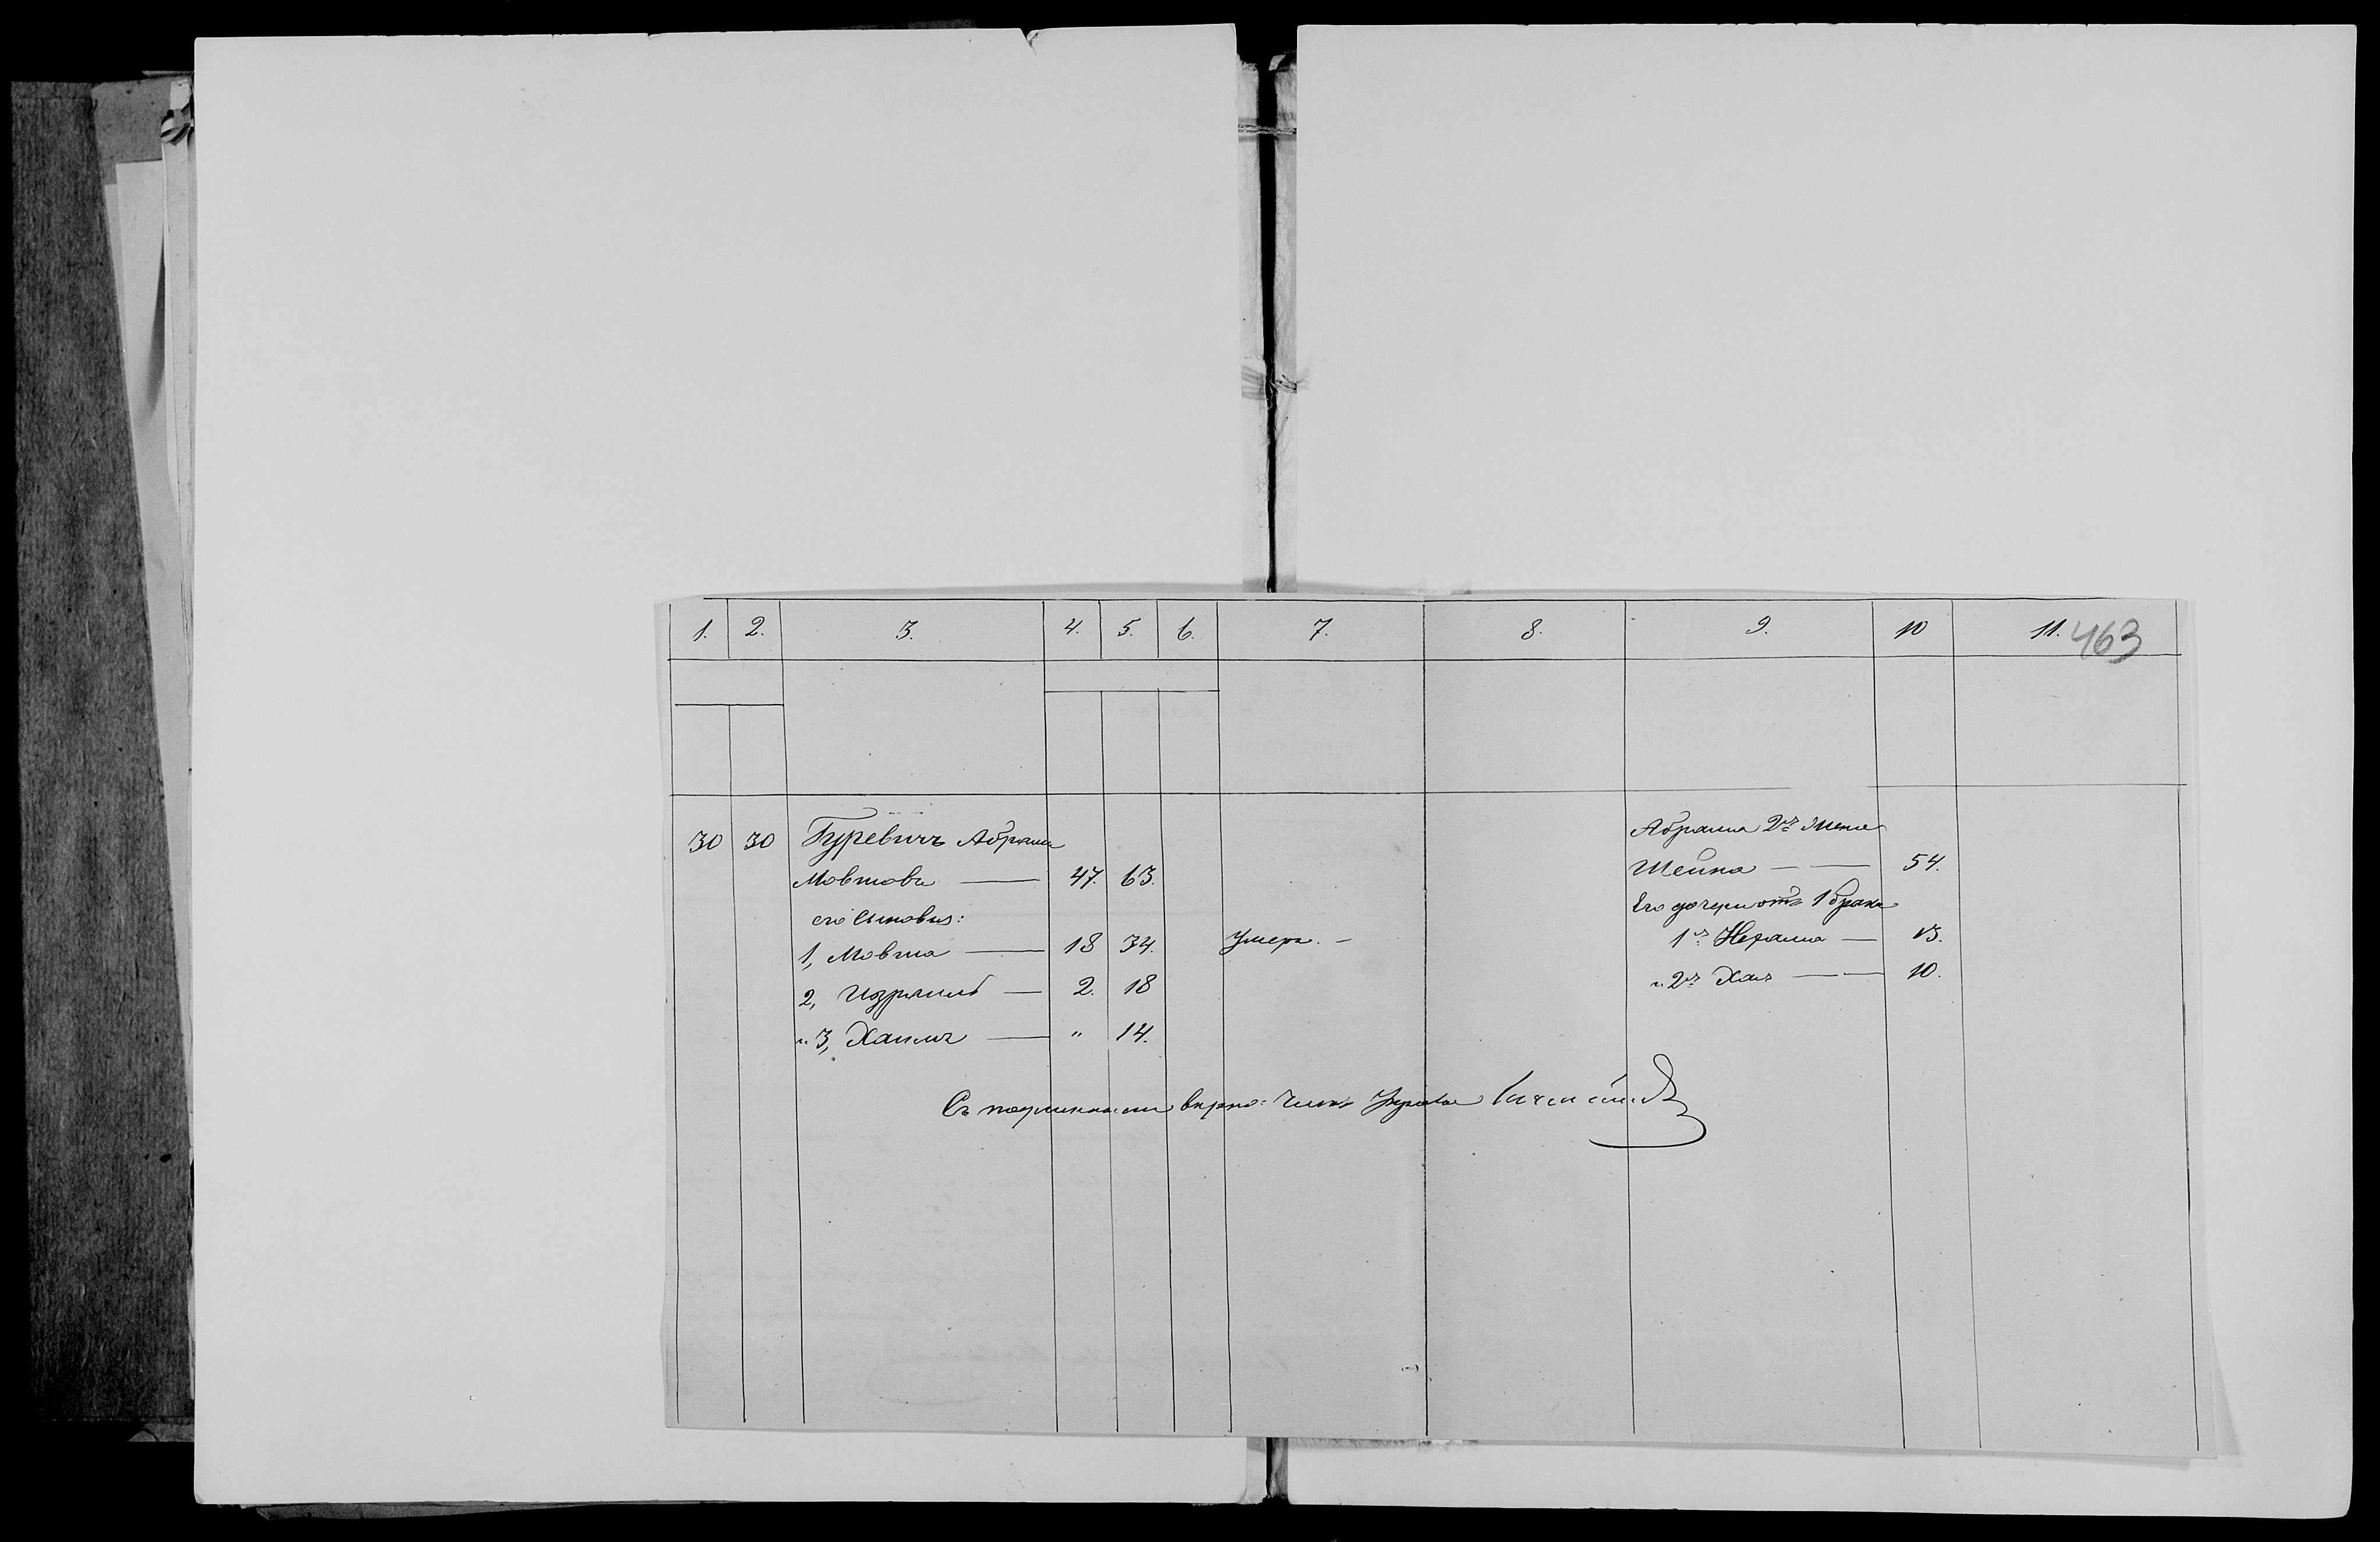 1. 2. 3. 4. 5. 6. 7. 8. 9. 10 11. 463
30 30 Гуревичъ Абрамъ
Мовшовъ — 47. 63.
его сыновья:
1, Мовша — 18 34. Умеръ. —
2, Израиль — 2. 18
и 3, Хаимъ — " 14.
Абрама 2я жена
Шейна — — 54.
Его дочери отъ 1 брака
1я Нехама — 13.
и 2я Хая — — 10.
Съ подлиннымъ вѣрно: Членъ Управы